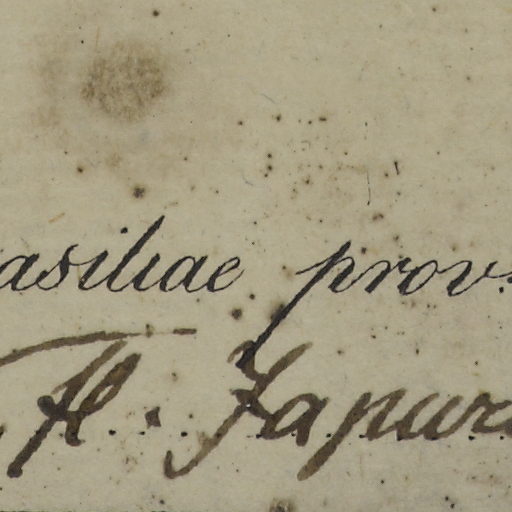 asiliae prov.
fl. Japura